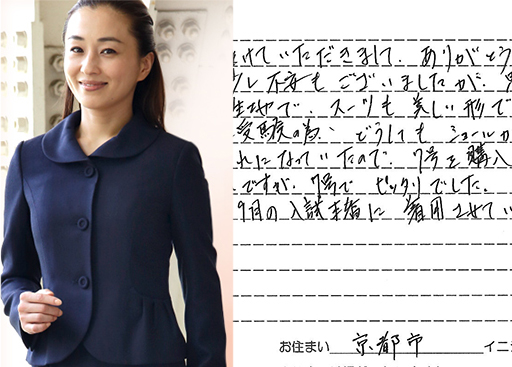 けていただきまして、ありがとう
少し不安もございましたが、
生地で、スーツも美しい形で
受験の為、どうしても ショールカ
れになっていたので、7号を購入
ですが、7号で ピッタリでした。
9月の入試本番に 着用させてい
お住まい 京都市 イニ